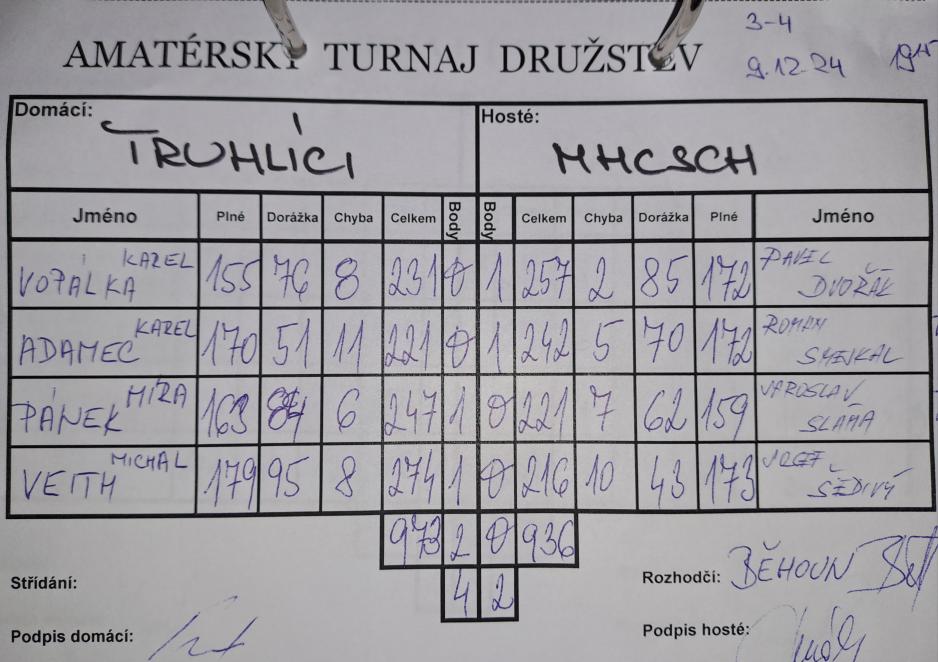 3-4
AMATÉRSKÝ TURNAJ DRUŽSTEV
9.12.24 19¹⁵
Domácí: Hosté:
TRUHLÍCI MHCSCH
Jméno Plné Dorážka Chyba Celkem Body Body Celkem Chyba Dorážka Plné Jméno
KAREL PAVEL
VOPÁLKA 155 76 8 231 0 1 257 2 85 172 DVOŘÁK
KAREL ROMAN
ADAMEC 170 51 11 221 0 1 242 5 70 172 SMEJKAL
MÍRA JAROSLAV
PÁNEK 163 84 6 247 1 0 221 7 62 159 SLÁMA
MICHAL JOSEF
VEITH 179 95 8 274 1 0 216 10 43 173 ŠEDIVÝ
973 2 0 936
Střídání: 4 2 Rozhodčí: BĚHOUN
Podpis domácí: Podpis hosté: